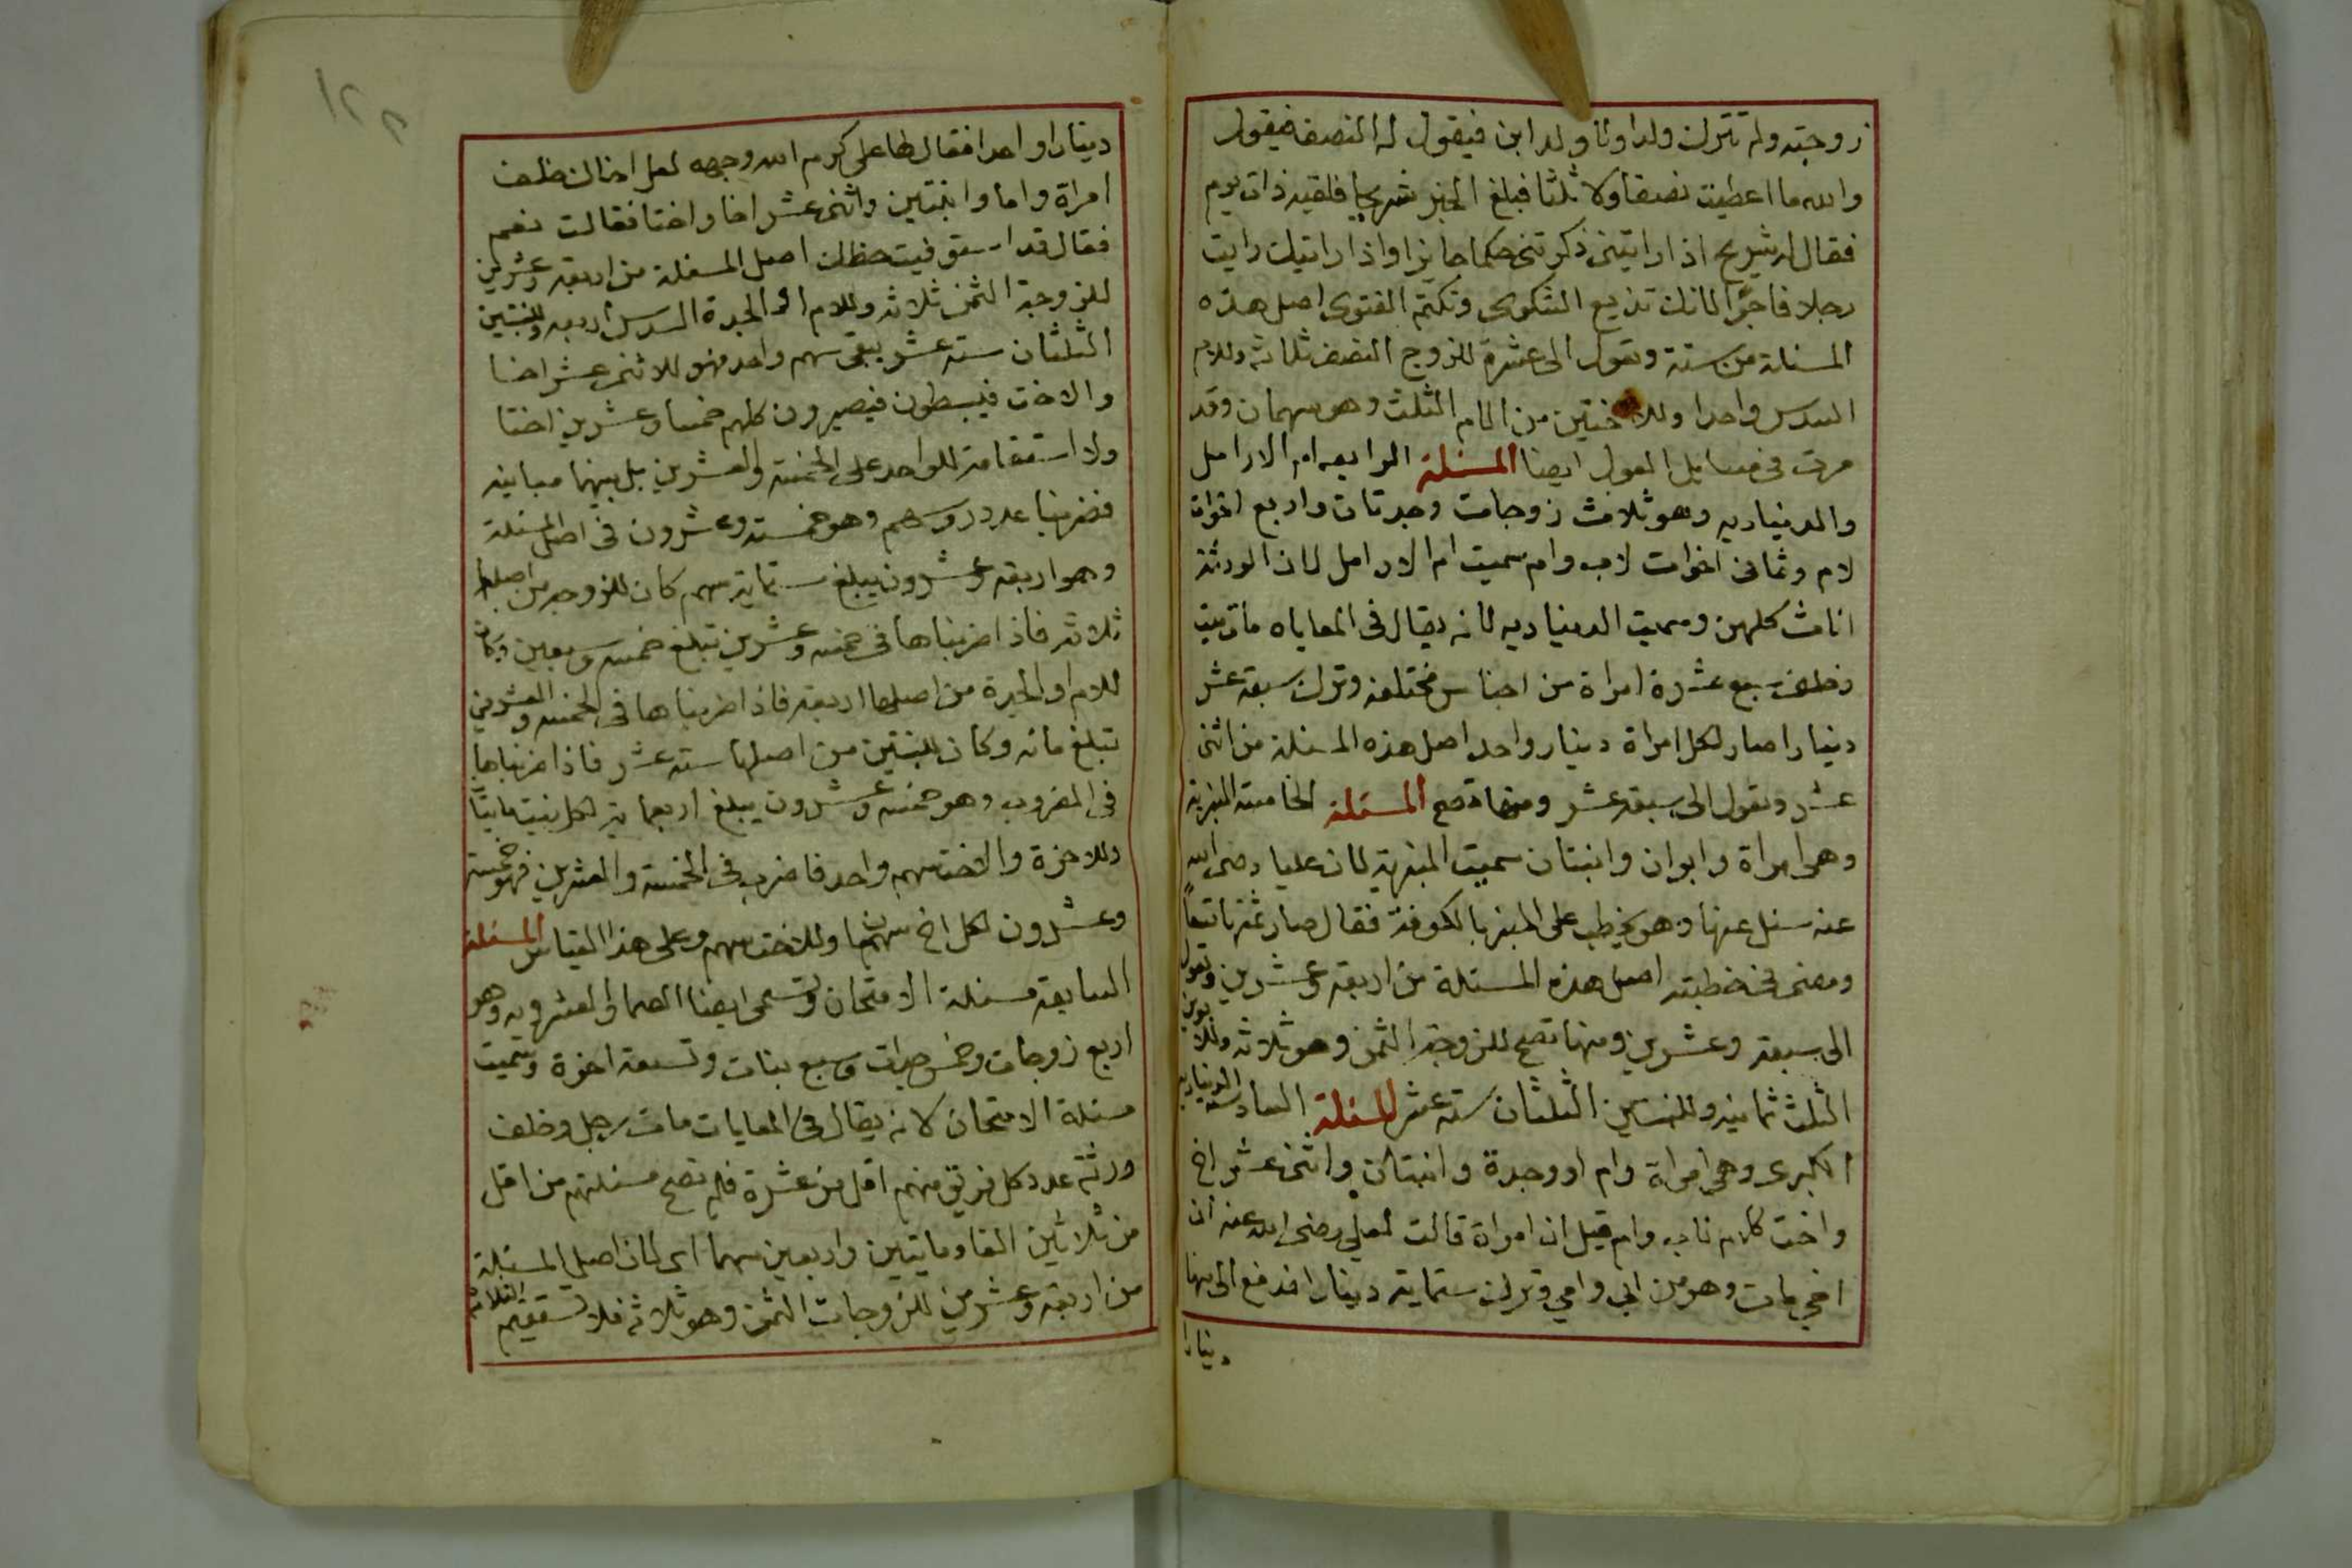 زوجته ولم تترك ولدا ولا ولد ابن فيقول له النصف فيقول
والله ما اعطيت نصفا ولا ثلثا فبلغ الخبر شريحا فلقيه ذات يوم
فقال له شريح اذا رايتني ذكرتني حكما جايزا واذا رايتك رايت
رجلا فاجرا لانك تذيع الشكوى وتكتم الفتوى اصل هذه
المسئلة من ستة وتعول الى عشرة للزوج النصف ثلاثة وللام
السدس واحدا وللاختين من الام الثلث وهو سهمان وقد
مرت في مسايل العول ايضا المسئلة الرابعه ام الارامل
والدينارية وهو ثلاث زوجات وجدتان واربع اخوات
لام وثماني اخوات لاب وام سميت ام الارامل لان الورثة
اناث كلهن وسميت الدينارية لانه يقال في المعاياه مات ميت
وخلف سبع عشرة امراة من اجناس مختلفه وترك سبعة عشر
دينارا صار لكل امراة دينار واحد اصل هذه المسئلة من اثنى
عشر وتعول الى سبعة عشر ومنها تصح المسئلة الخامسة المنبرية
وهي امراة وابوان وابنتان سميت المنبرية لان عليا رضى الله
عنه سئل عنها وهو يخطب على المنبر بالكوفة فقال صار ثمنها تسعاً
ومضى في خطبته اصل هذه المسئلة من اربعة وعشرين وتعول
الى سبعة وعشرين ومنها تصح للزوجة الثمن وهو ثلاثه وللابوين
الثلث ثمانيه وللبنتين الثلثان سته عشر المسئلة السادسة الدينارية
الكبرى وهي امراة وام او وجدة وابنتان واثنى عشر اخ
واخت كلام لاب وام قيل ان امراة قالت لعلي رضى الله عنه ان
اخي مات وهو من ابي وامي وترك ستماية دينارا فدفع الى منها
دينارا
١٢٢
دينارا واحدا فقال لها علي كرم الله وجهه لعل اخاك خلف
امراة واما وابنتين واثنى عشر اخا واختا فقالت نعم
فقال قد استوفيت حظك اصل المسئلة من اربعة وعشرين
للزوجة الثمن ثلاثه وللام او الجدة السدس اربعه وللبنتين
الثلثان سته عشر يبقى سهم واحد فهو للاثنى عشر اخا
والاخت فيبسطون فيصيرون كلهم خمسا وعشرين اختا
ولا استقامة للواحد على الخمسة والعشرين بل بينهما مباينه
فضربنا عدد روسهم وهو خمسة وعشرون في اصل المسئلة
وهو اربعة وعشرون يبلغ ستماية سهم كان للزوجة من اصلها
ثلاثه فاذا ضربناها في خمسه وعشرين تبلغ خمسه وسبعين وكان
للام او الجدة من اصلها اربعة فاذا ضربناها في الخمسه والعشرين
تبلغ مائه وكان للبنتين من اصلها سته عشر فاذا ضربناها
في المضروب وهو خمسه وعشرون يبلغ اربعماية لكل بنت مايتا
وللاخوة والاخت سهم واحد فاضرب في الخمسة والعشرين فهو خمسة
وعشرون لكل اخ سهمان وللاخت سهم وعلى هذا القياس المسئلة
السابعة مسئلة الامتحان وتسمى ايضا الصما والعشرويه وهو
اربع زوجات وخمس جدات وسبع بنات وتسعة اخوة وسميت
مسئلة الامتحان لانه يقال في المعايات مات رجل وخلف
ورثة عدد كل فريق منهم اقل من عشرة فلم تصح مسئلتهم من اقل
من ثلاثين الفا ومايتين واربعين سهما اى لان اصل المسئلة
من اربعة وعشرين للزوجات الثمن وهو ثلاثه فلا تستقيم الثلاثه